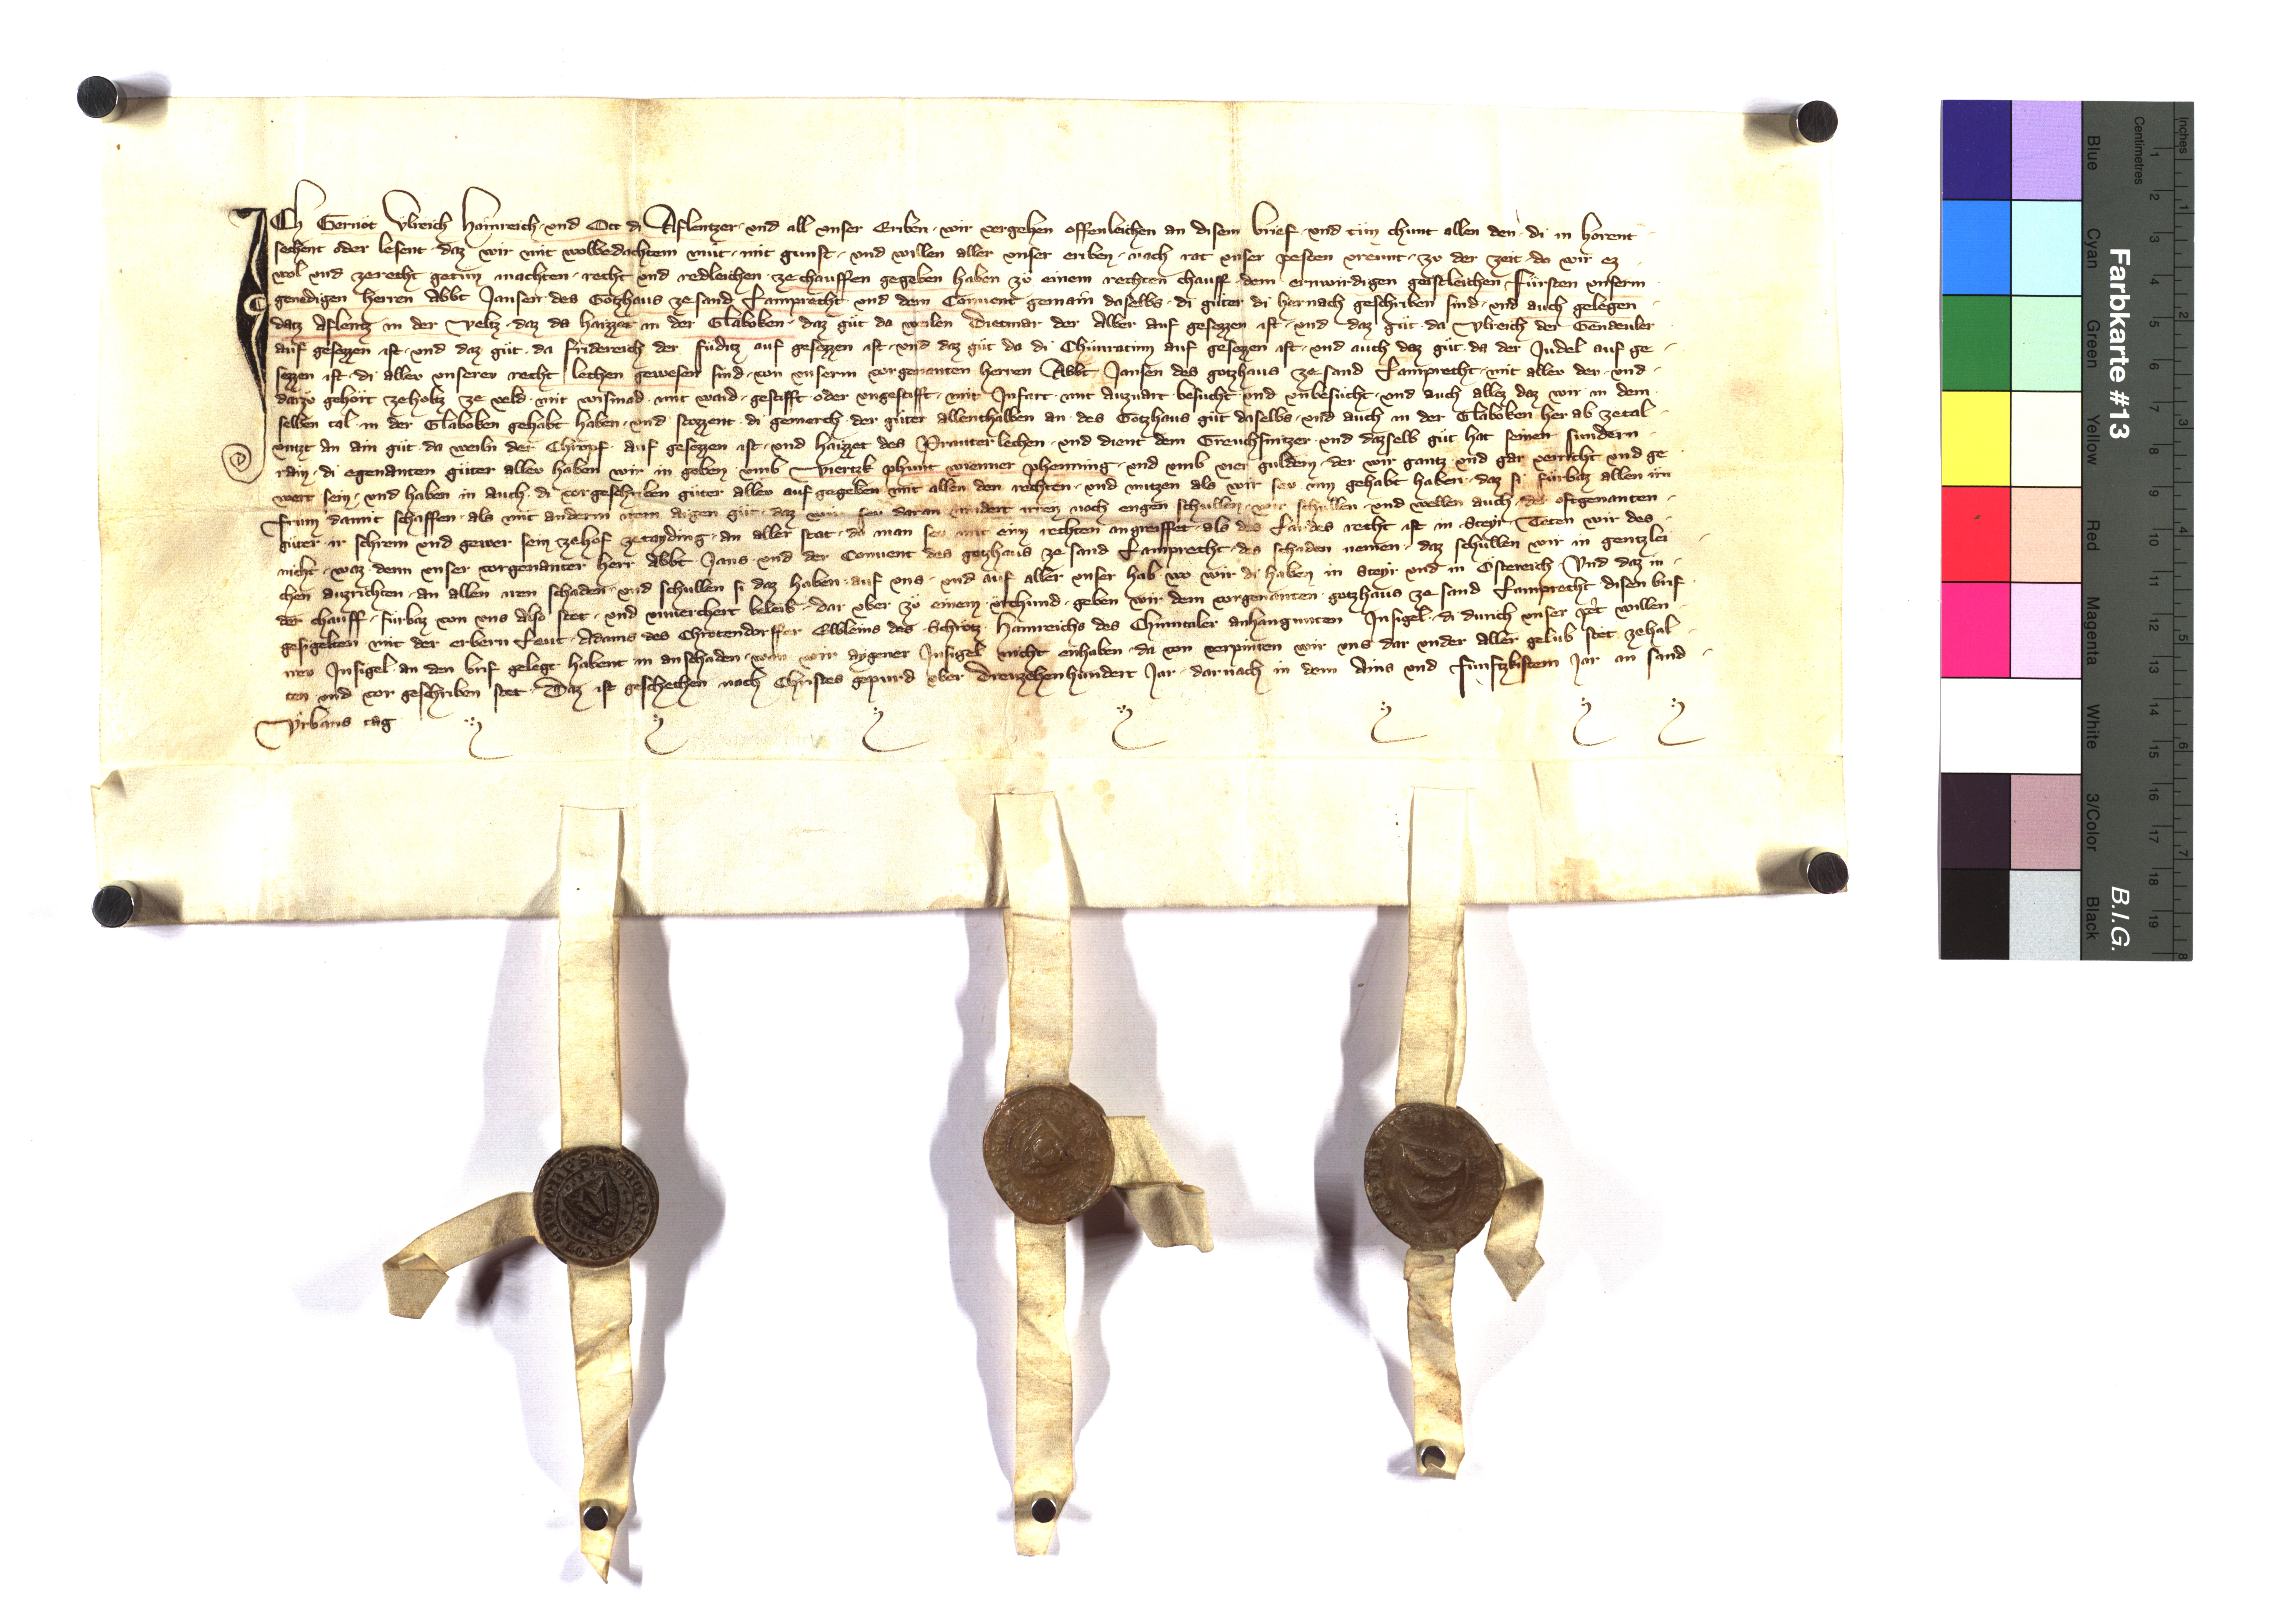 ICh Gernot Vlreich Hainreich · und Ott di Aflentzer · und all unser Erben · wir vergehen offenleichen an disem brief · und tůn chunt allen den · di in horent
sechent oder lesent · daz wir mit wolbedachtem můt · mit gunst · und willen aller unser erben · nach rat unser pesten vreunt · zu der zeit · do wir ez
wol und zerecht getůn machten · recht und redleichen · ze chauffen gegeben haben zů einem rechten chauff · dem erwirdigen geistleichen Fürsten unserm
genedigen herren Abbt Jansen des Gotzhaus ze sand Lamprecht · und dem Convent gemain daselbs · di gůter di hernach geschriben sind · und auch gelegen
datz Aflentz in der Veltz · daz da haizzet in der Glaboken · daz gůt da weilen Dietmar der Alber auf gesezzen ist · und daz gůt · da Vlreich der Gendeuler
auf gesezzen ist · und daz gůt · da Fridereich der Fůditz auf gesezzen ist · und daz gůt da di Chůnratinn auf gesezzen ist · und auch daz gůt · da der Judel auf ge
sezzen ist · di allev unserev recht lechen gewesen sind · von unserm vorgenanten herren Abbt Jansen des gotzhaus ze sand Lamprecht · mit allev der · und
darzů gehört zeholtz ze veld · mit wismad · mit waid · gestifft oder ungestifft · mit Infart · mit auzvart · besucht und unbesucht · und auch allez daz wir in dem
selben tal · in der Glaboken gehabt haben · und stozzent · di gemerch · der gůter allenthalben an · des Gotzhaus gůt daselbs · und auch in der Glaboken her ab zetal
untzt an ain gůt · da weiln der Chropf · auf gesezzen ist · und haizzet des Pranter lechen · und dient dem Greuchsnitzer · und dazselb gůt hat seinen sundern
rain · di egenanten gůter allev haben wir in geben · umb Viertzk phunt wienner phenning · und umb vier guldein · der wir gantz und gar verricht und ge
wert sein · und haben in auch · di vorgeschriben gůter allev auf gegeben mit allen den rechten · und nutzen als wir sev inn gehabt haben · daz si fürbaz allen irn
frum damit schaffen · als mit anderm irem aigen gůt · daz wir sev daran nindert irren noch engen schullen · wir schullen · und wellen auch · der oftgenanten
gůter · ir scherm und gewer sein zehof zetayding · an aller stat · da man sev mit eim rechten angreiffet · als des Landes recht ist in Steyr · Teten wir des
nicht · waz denn unser vorgenanter herr Abbt Jans · und der Convent des gotzhaus ze sand Lamprecht · des schaden nemen · daz schullen wir in gentzlei
chen auzrichten · an allen iren schaden · und schullen si daz haben · auf uns · und auf aller unser hab · wo wir di haben in Steyr und in Östereich · Vnd daz in
der chauff · fürbaz von uns also stet · und unverchert beleib · dar uber zů einem · urchund · geben wir dem vorgenanten gotzhaus ze sand Lamprecht disen brif
gesigelten · mit der erbern Leut · Adams des Chrotendorffer Elbleins des Schretz · Hainreichs des Chinntaler anhangunten Insigel · di durich unser pet willen
irev Insigel · an den brif gelegt habent in anschaden · wan wir aygener Insigel nicht enhaben · da von verpinten wir uns dar under aller gelub stet zehal
ten und vor geschriben stet · Daz ist geschechen nach Christes gepurd uber Dreuzehenhundert Jar · darnach in dem Ains und Fünftzkistem Jar an sand
Vrbans tag
Inches
Centimetres
1 2 3 4 5 6 7 8
1 2 3 4 5 6 7 8 9 10 11 12 13 14 15 16 17 18 19
Blue Cyan Green Yellow Red Magenta White 3/Color Black
Farbkarte #13
B.I.G.